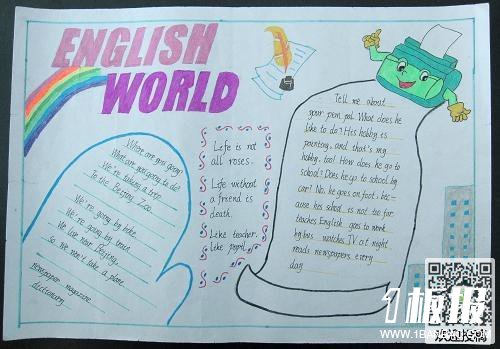 ENGLISH
WORLD
Where are you going?
What are you going to do?
We're taking a trip
To the Beijing Zoo
We're going by bike.
We're going by train
We live near Beijing,
So we won't take a plane.
newspaper magazine
dictionary
Life is not
all roses.
Life without
a friend is
death.
Like teacher,
like pupil.
Tell me about
your pen pal. What does he
like to do? His hobby is
painting, and that's my
hobby, too! How does he go to
school? Does he go to school by
car? No, he goes on foot, bec-
ause his school is not too far.
teaches English goes to work
by bus watches TV at night
reads newspapers every
day
1板报
WWW.1BANBAO.COM
欢迎投稿